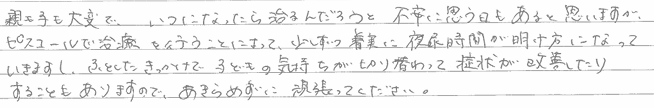 親も子も大変で、いつになったら治るんだろうと不安に思う日もあると思いますが、
ピスコールで治療を行うことによって、少しずつ着実に夜尿時間が明け方になって
いきますし、ふとしたきっかけで子どもの気持ちが切り替わって症状が改善したり
することもありますので、あきらめずに頑張ってください。